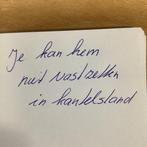 Je kan hem
niet vastzetten
in kantelstand